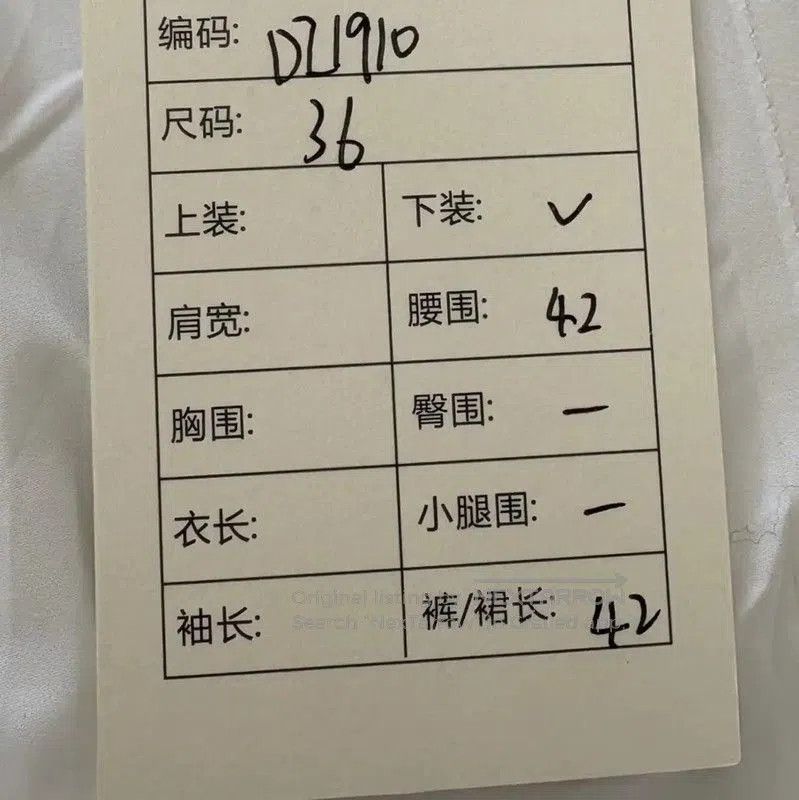 编码: DZ1910
尺码: 36
上装: 下装: ✓
肩宽: 腰围: 42
胸围: 臀围: —
衣长: 小腿围: —
袖长: 裤/裙长: 42
Original listing
Search